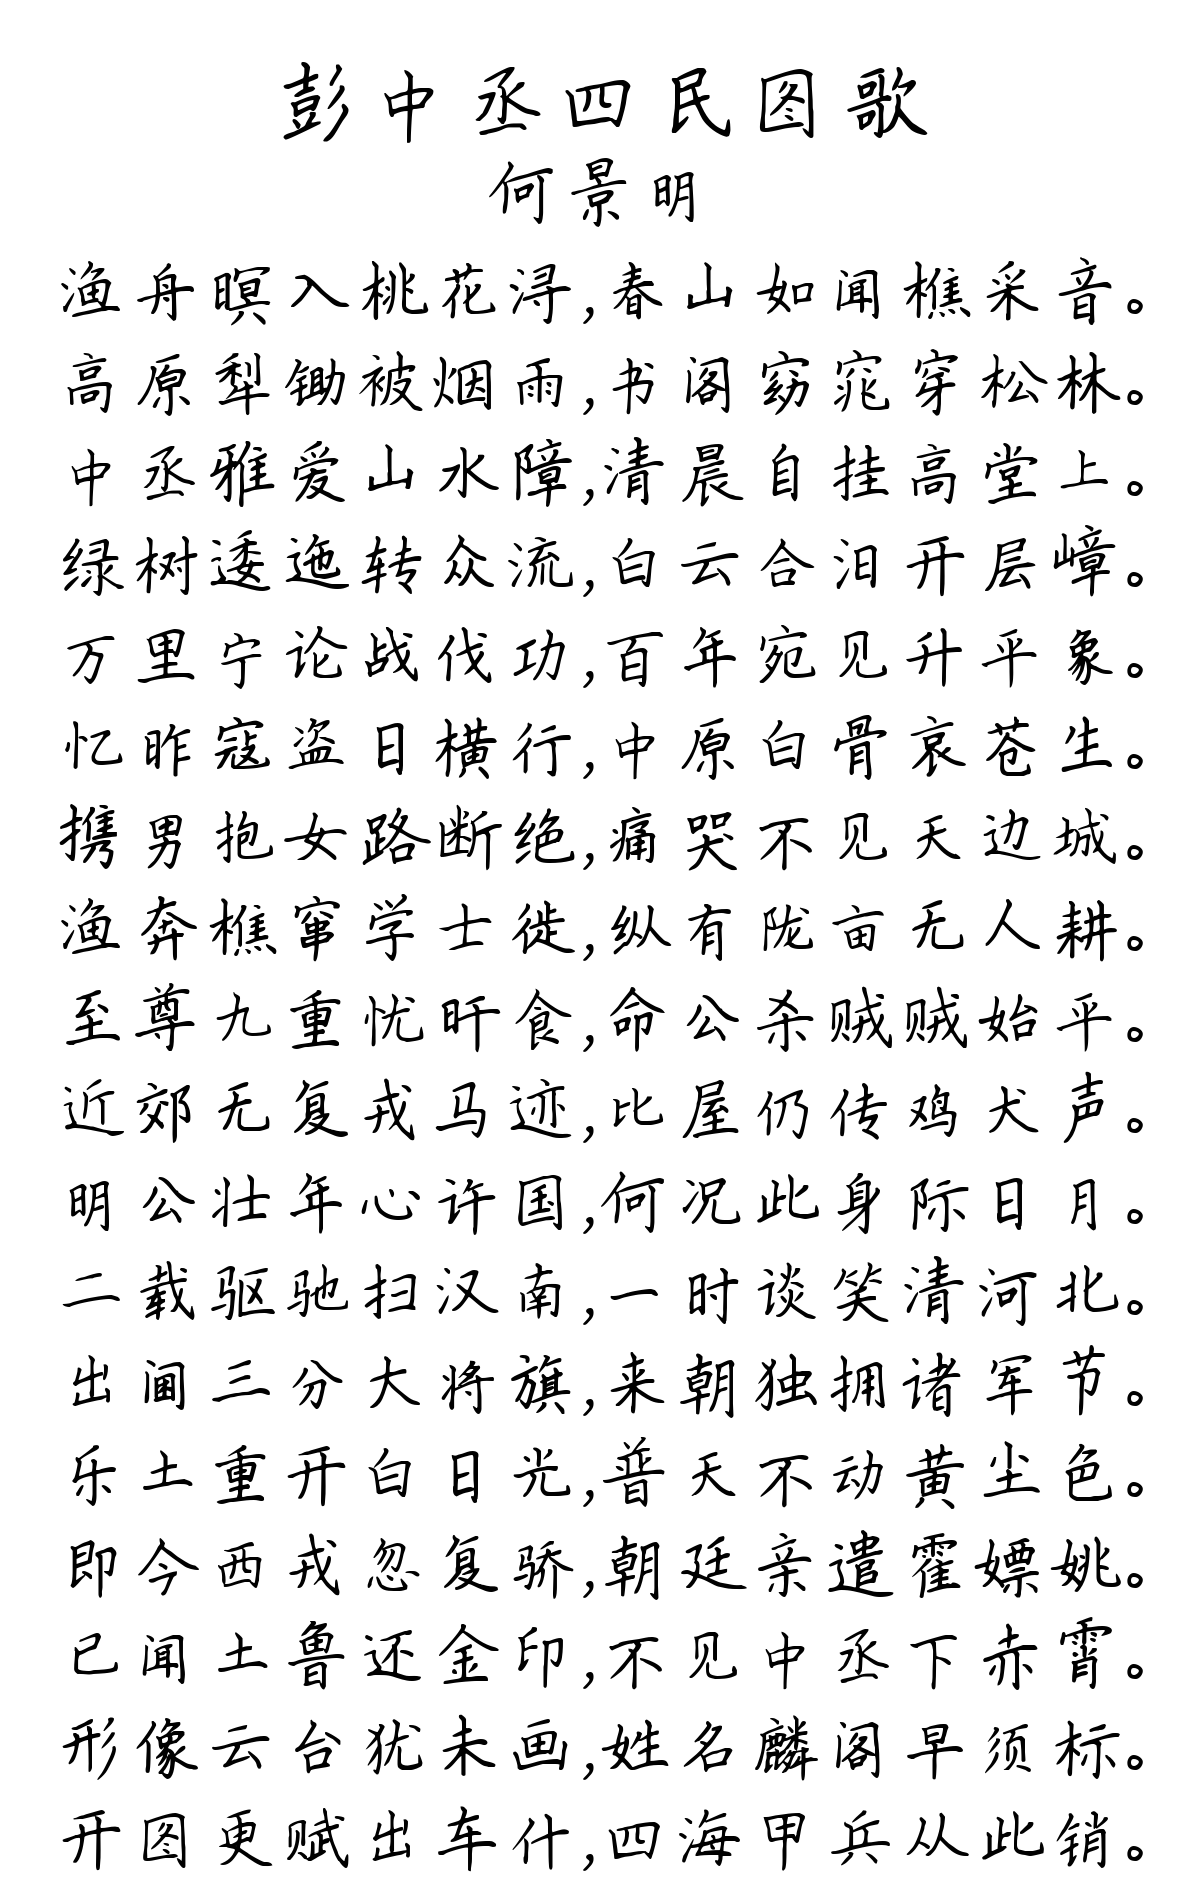 彭中丞四民图歌
何景明
渔舟暝入桃花浔,春山如闻樵采音。
高原犁锄被烟雨,书阁窈窕穿松林。
中丞雅爱山水障,清晨自挂高堂上。
绿树逶迤转众流,白云合汨开层嶂。
万里宁论战伐功,百年宛见升平象。
忆昨寇盗日横行,中原白骨哀苍生。
携男抱女路断绝,痛哭不见天边城。
渔奔樵窜学士徙,纵有陇亩无人耕。
至尊九重忧旰食,命公杀贼贼始平。
近郊无复戎马迹,比屋仍传鸡犬声。
明公壮年心许国,何况此身际日月。
二载驱驰扫汉南,一时谈笑清河北。
出阃三分大将旗,来朝独拥诸军节。
乐土重开白日光,普天不动黄尘色。
即今西戎忽复骄,朝廷亲遣霍嫖姚。
已闻土鲁还金印,不见中丞下赤霄。
形像云台犹未画,姓名麟阁早须标。
开图更赋出车什,四海甲兵从此销。